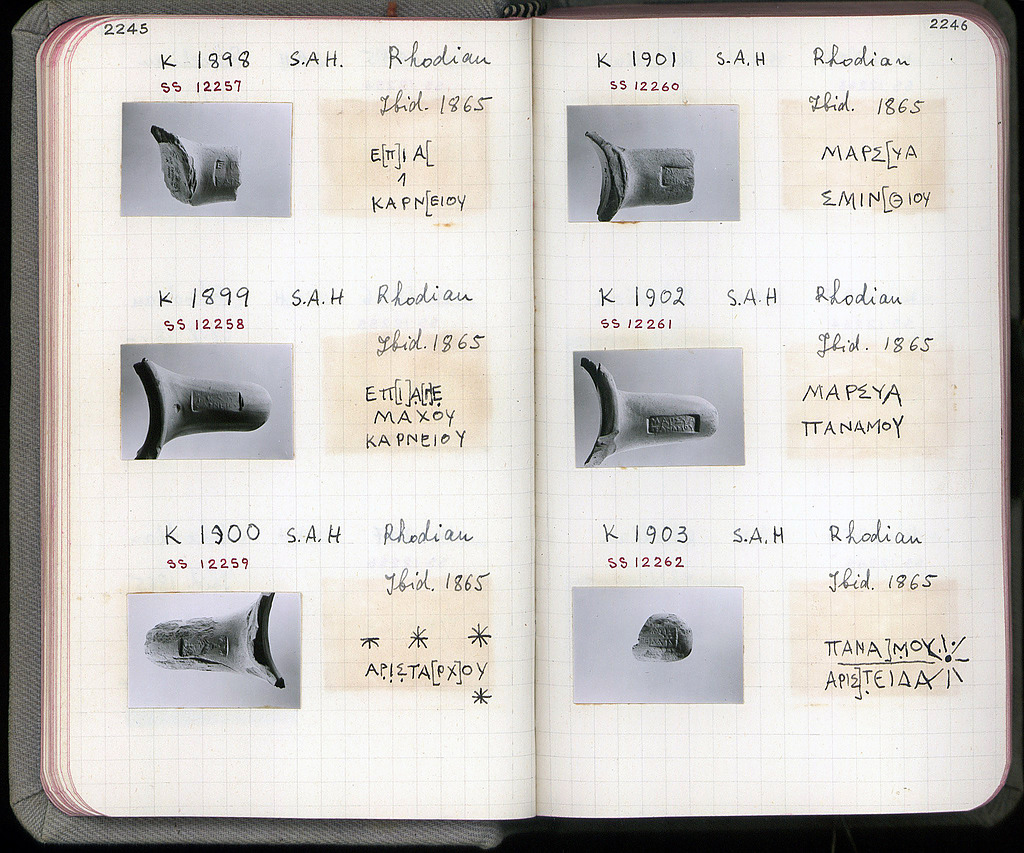 2245
K 1898 S.A.H. Rhodian
SS 12257
Ibid. 1865
Ε[π]ι Α[
1
ΚΑΡΝ[ΕΙΟΥ
K 1899 S.A.H Rhodian
SS 12258
Ibid. 1865
ΕΠ[Ι]Α[Ι]Ν̣Ε̣
ΜΑΧΟΥ
ΚΑΡΝΕΙΟΥ
K 1900 S.A.H Rhodian
SS 12259
Ibid. 1865
ΑΡ̣Ι̣Σ̣ΤΑ[ΡΧ]ΟΥ
2246
K 1901 S.A.H Rhodian
SS 12260
Ibid. 1865
ΜΑΡΣ[ΥΑ
ΣΜΙΝ[ΘΙΟΥ
K 1902 S.A.H Rhodian
SS 12261
Ibid. 1865
ΜΑΡΣΥΑ
ΠΑΝΑΜΟΥ
K 1903 S.A.H Rhodian
SS 12262
Ibid. 1865
ΠΑΝΑ]Μ̣ΟΥ
ΑΡΙΣ]Τ̣ΕΙΔΑ